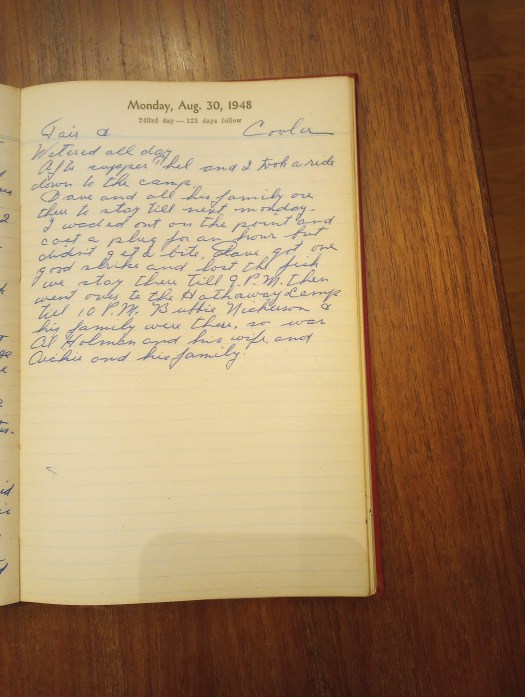 Monday, Aug. 30, 1948
243rd day — 123 days follow
Fair & Cooler
Watered all day
After supper Thel and I took a ride
down to the camp.
Dave and all his family are
there to stay till next monday.
I waded out on the point and
cast a plug for an hour but
didn't get a bite. Dave got one
good strike and lost the fish
we stay there till 9 P.M. then
went over to the Hathaway Camp
till 10 P.M. Buttie Nickerson &
his family were there, so was
Al Holman and his wife and
Archie and his family.